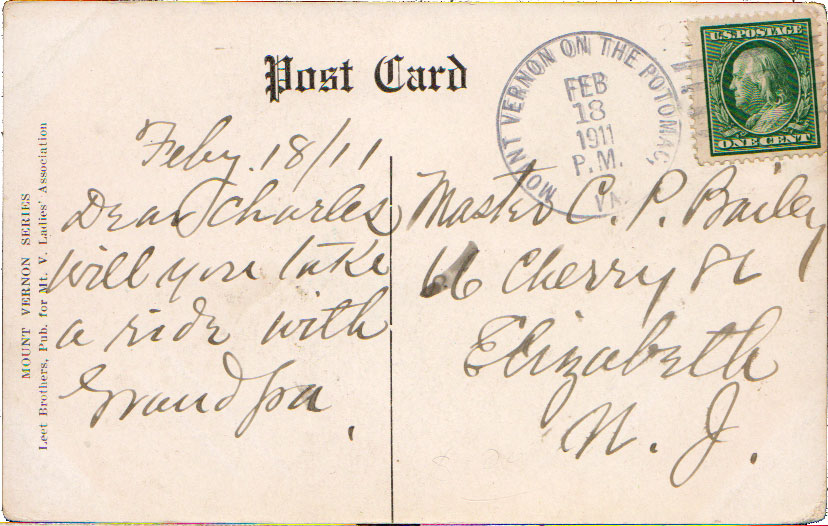 Post Card
MOUNT VERNON ON THE POTOMAC,
VA.
FEB
18
1911
P.M.
U.S. POSTAGE
ONE CENT
Feby. 18/11
Dear Charles
will you take
a ride with
Grandpa.
Master C. P. Bailey
66 Cherry St
Elizabeth
N. J.
MOUNT VERNON SERIES
Leet Brothers, Pub. for Mt. V. Ladies' Association